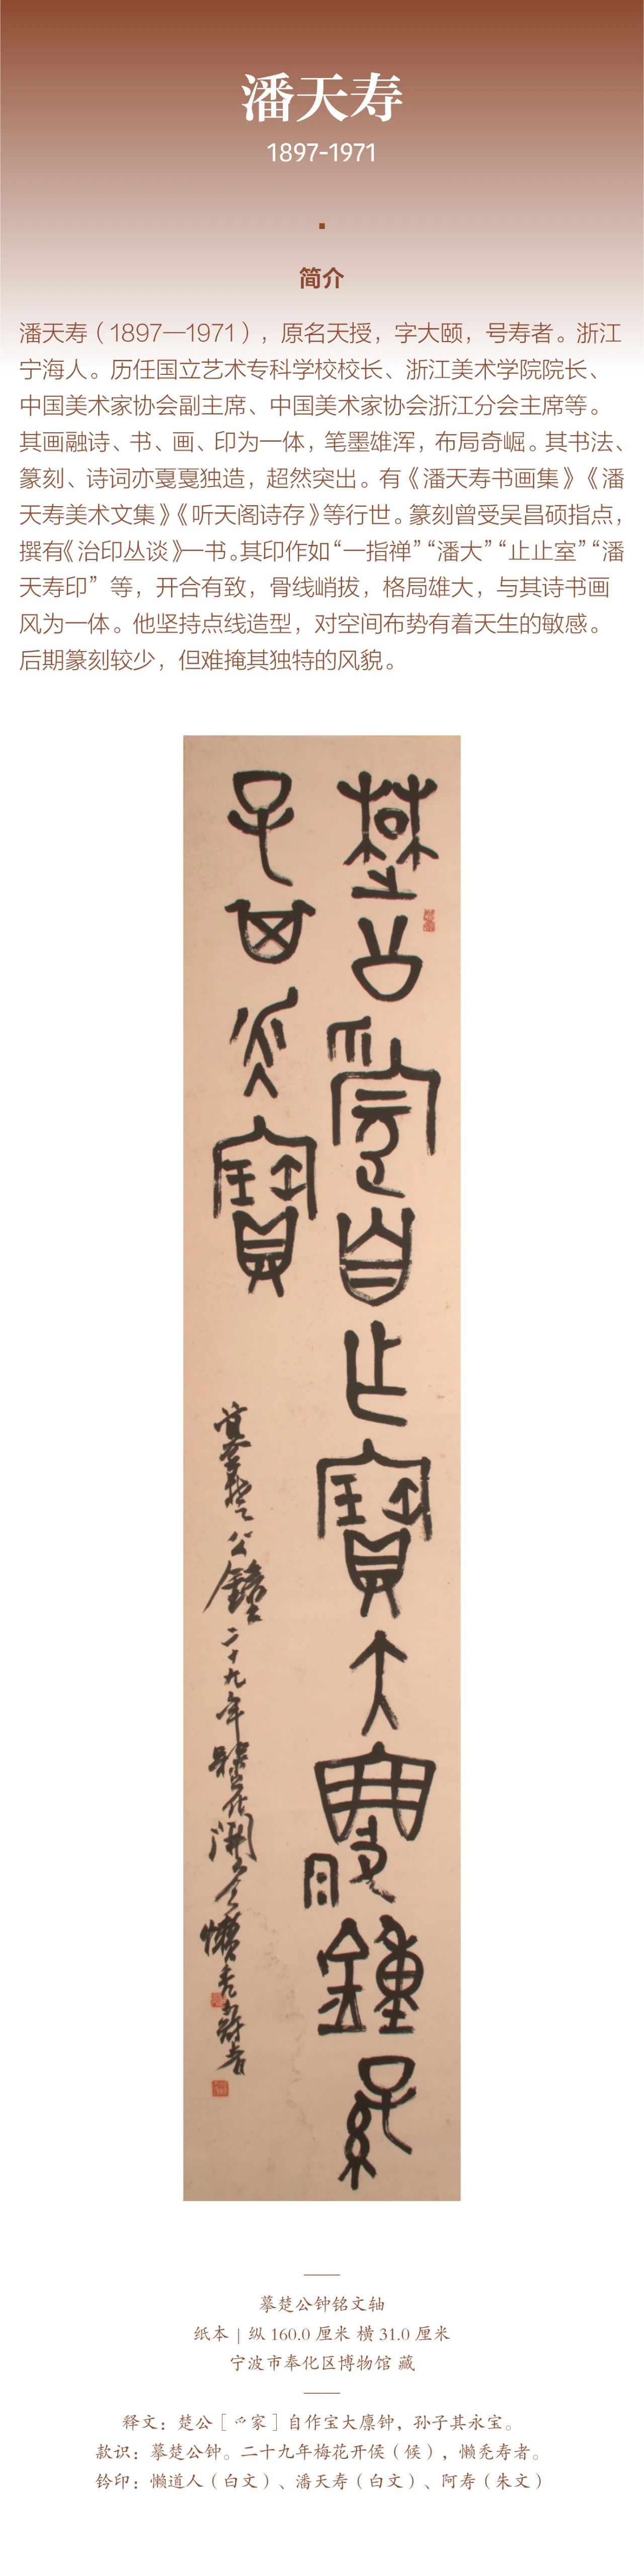 潘天寿
1897-1971
简介
潘天寿（1897—1971），原名天授，字大颐，号寿者。浙江
宁海人。历任国立艺术专科学校校长、浙江美术学院院长、
中国美术家协会副主席、中国美术家协会浙江分会主席等。
其画融诗、书、画、印为一体，笔墨雄浑，布局奇崛。其书法、
篆刻、诗词亦戛戛独造，超然突出。有《潘天寿书画集》《潘
天寿美术文集》《听天阁诗存》等行世。篆刻曾受吴昌硕指点，
撰有《治印丛谈》一书。其印作如“一指禅”“潘大”“止止室”“潘
天寿印”等，开合有致，骨线峭拔，格局雄大，与其诗书画
风为一体。他坚持点线造型，对空间布势有着天生的敏感。
后期篆刻较少，但难掩其独特的风貌。
楚公自作寶大鐘孫
子其永寶
摹楚公鐘二十九年開懶禿壽者
摹楚公钟铭文轴
纸本 | 纵 160.0 厘米 横 31.0 厘米
宁波市奉化区博物馆 藏
释文：楚公［爫家］自作宝大廪钟，孙子其永宝。
款识：摹楚公钟。二十九年梅花开侯（候），懒秃寿者。
钤印：懒道人（白文）、潘天寿（白文）、阿寿（朱文）